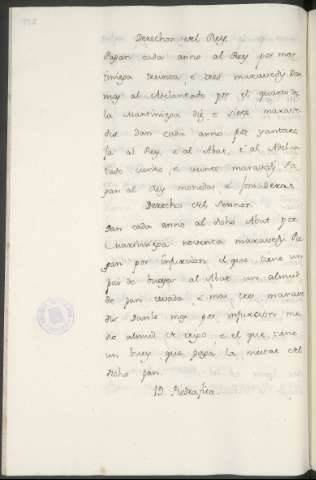 Derechos del Rey.
Pagan cada anno al Rey por mar-
tiniega treinta e tres maravedis. Dan
mas al Adelantado por el quarto de
la Martiniega diz e siete marave-
dis dan cada anno por yantares
la al Rey, e al Abat, e al Adelan-
tado ciento e veinte maravedis. Pa-
gan al Rey monedas e foraderas.
Derechos del Sennor.
Dan cada anno al dicho Abat por
Martiniega noventa maravedis. Pa-
gan por infurcion el que tiene un
par de bueyes al Abat un almud
de pan cevada e mas tres marave-
dis. Danle mas por infurcion me-
dio almud de trigo e el que tiene
un buey que paga la meitat del
dicho pan.
19. Piedrafita.